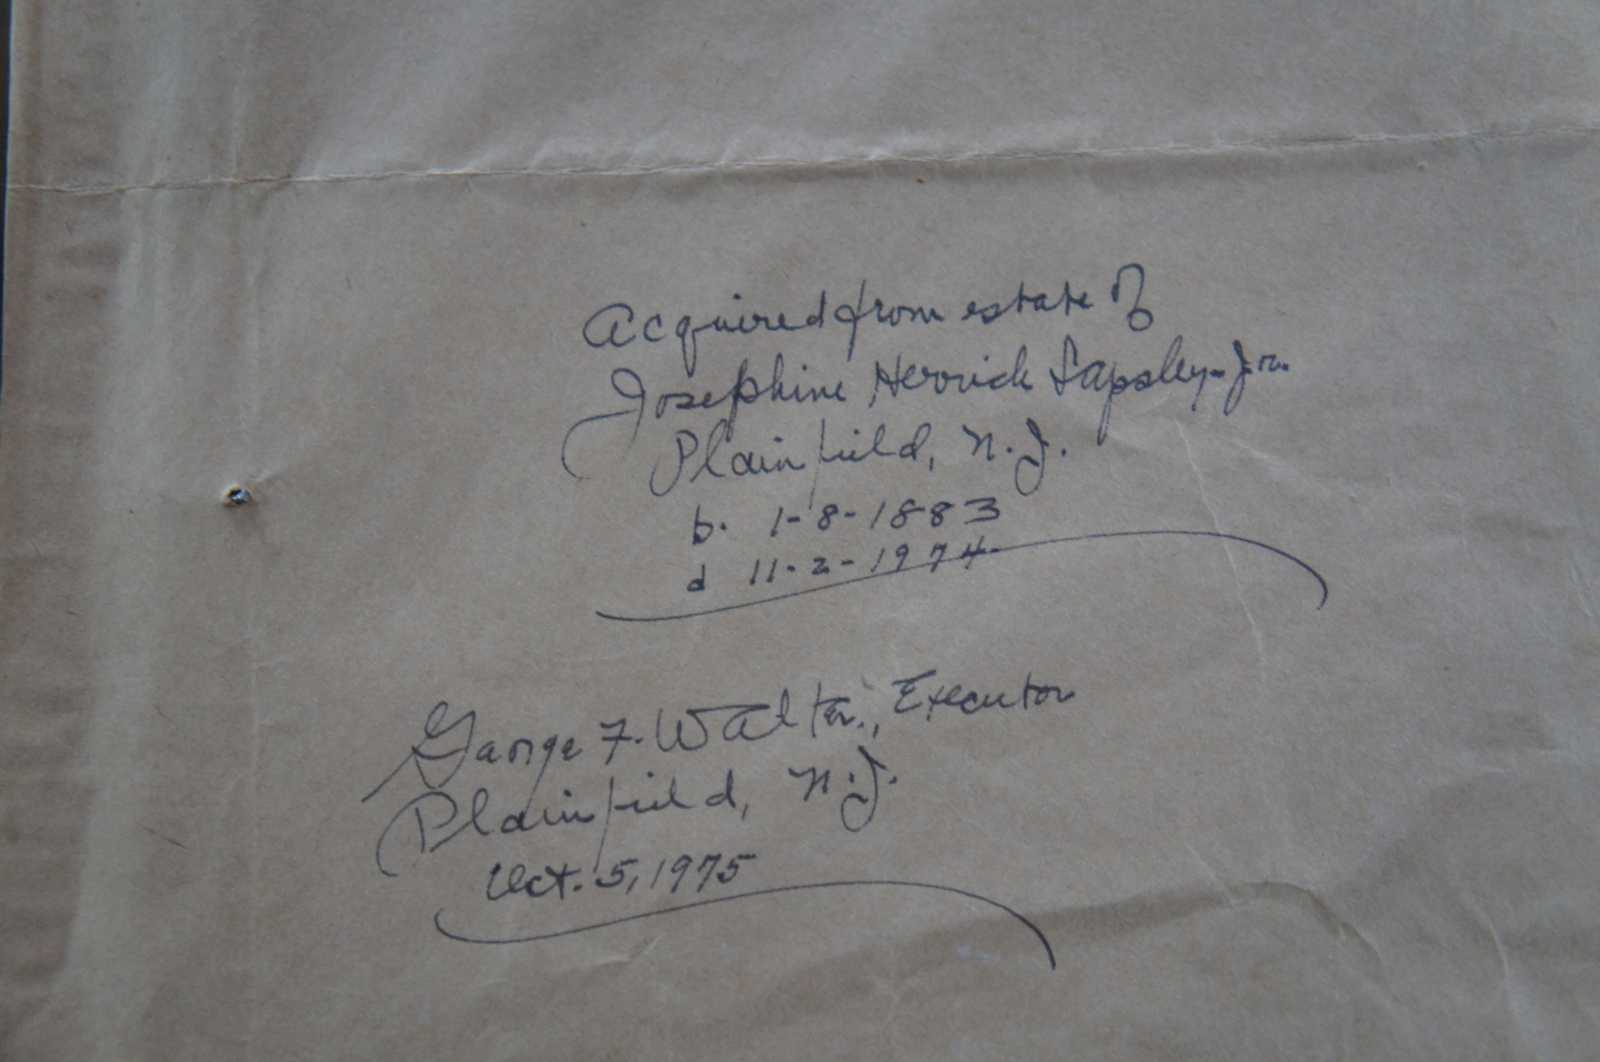 Acquired from estate of
Josephine Herrick Lapsley-Jr.
Plainfield, N.J.
b. 1-8-1883
d 11-2-1974
George F. Walter, Executor
Plainfield, N.J.
Oct. 5, 1975